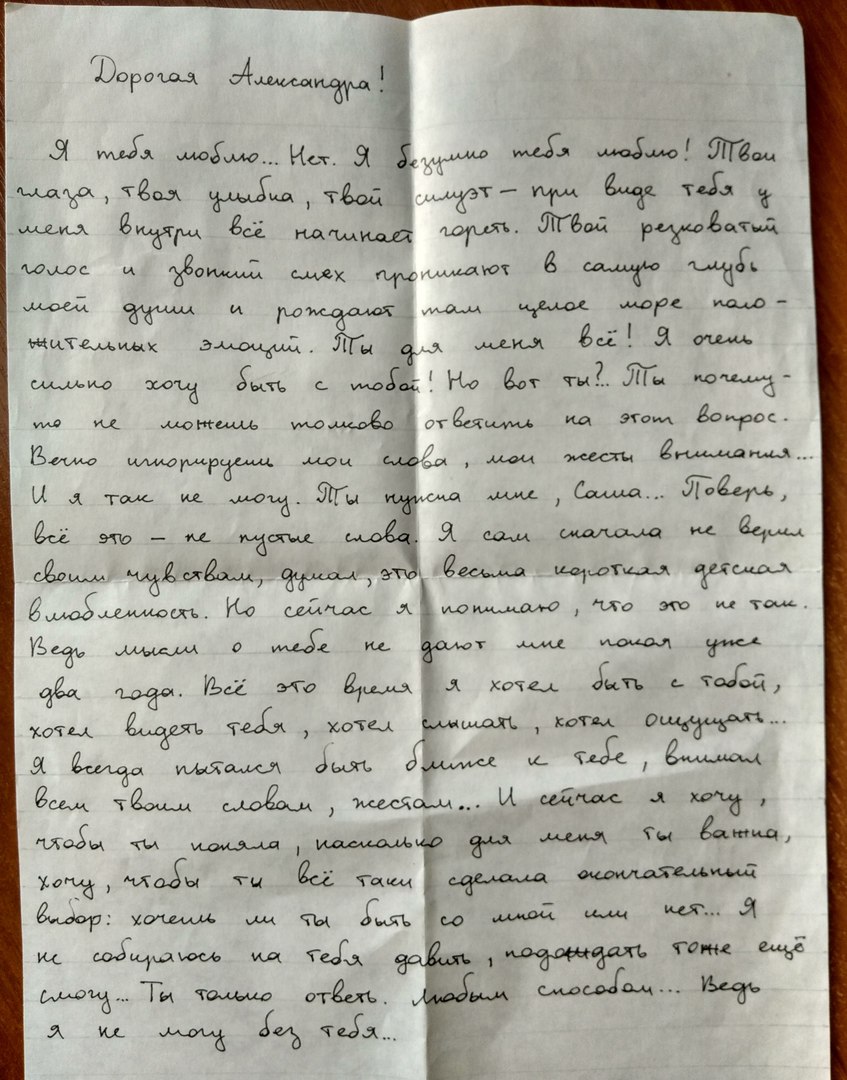 Дорогая Александра!
Я тебя люблю... Нет. Я безумно тебя люблю! Твои
глаза, твоя улыбка, твой силуэт – при виде тебя у
меня внутри всё начинает гореть. Твой резковатый
голос и звонкий смех проникают в самую глубь
моей души и рождают там целое море поло-
жительных эмоций. Ты для меня всё! Я очень
сильно хочу быть с тобой! Но вот ты?.. Ты почему-
то не можешь толково ответить на этот вопрос.
Вечно игнорируешь мои слова, мои жесты внимания...
И я так не могу. Ты нужна мне, Саша... Поверь,
всё это – не пустые слова. Я сам сначала не верил
своим чувствам, думал, это весьма короткая детская
влюбленность. Но сейчас я понимаю, что это не так.
Ведь мысли о тебе не дают мне покоя уже
два года. Всё это время я хотел быть с тобой,
хотел видеть тебя, хотел слышать, хотел ощущать...
Я всегда пытался быть ближе к тебе, внимал
всем твоим словам, жестам... И сейчас я хочу,
чтобы ты поняла, насколько для меня ты важна,
хочу, чтобы ты всё таки сделала окончательный
выбор: хочешь ли ты быть со мной или нет... Я
не собираюсь на тебя давить, подождать тоже ещё
смогу... Ты только ответь. Любым способом... Ведь
я не могу без тебя...